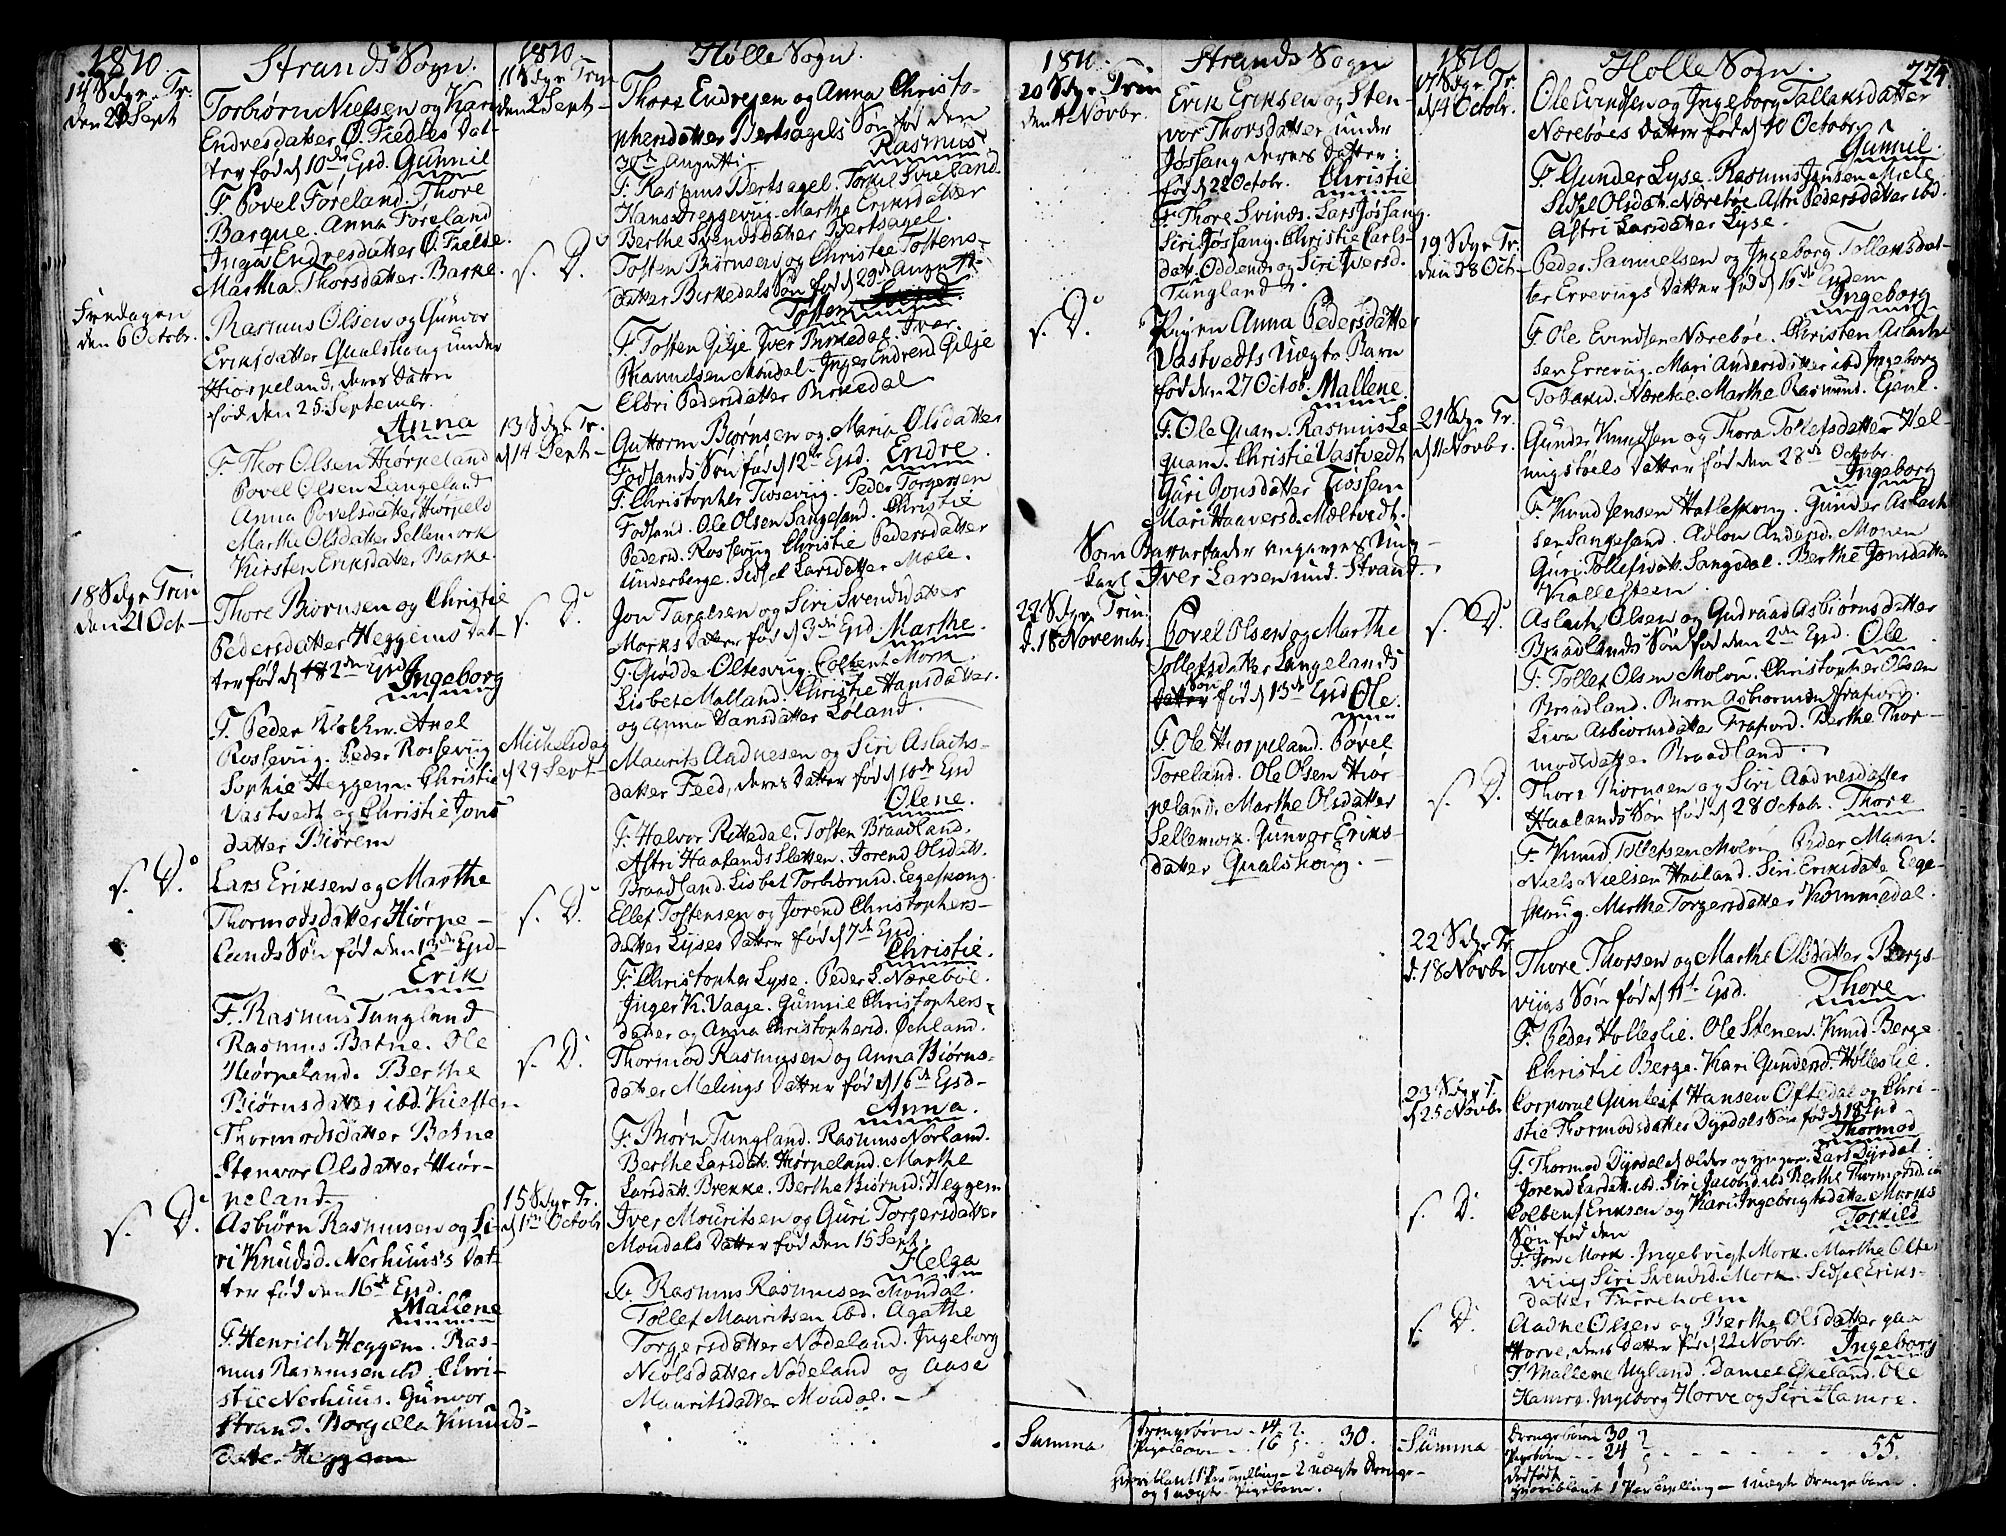 1810.
Strands Sogn.
14 Sdgr Tr:
Torbiørn Nielsen og Kari
Endresdatter Ø. Fiedles dat-
ter fød d 10de Ejsd. Gunnil
F. Povel Føreland. Thore
Barque. Anna Føreland
Inga Endresdatter Ø. Fielde.
Martha Thorsdatter Barke.
Fredagen
den 6 Octobr.
Rasmus Olsen og Gunvor
Eriksdatter Qualshoug under
Hiørpeland, deres Datter
fød den 25 Septembr.
Anna
F. Thor Olsen Hiørpeland
Povel Olsen Langeland
Anna Povelsdatter Hiørpeld
Marthe Olsdatter Sellemork
Kirsten Eriksdatter Barke.
18 Sdgr Trin
den 21 Oct
Thore Biørnsen og Christie
Pedersdatter Heggems Dat-
ter fød d 12den Ejsd
Ingeborg
F. Peder Axel
Rossevig. Peder Rossevig
Sophie Heggem. Christie
Vastvedt og Christie Jons
datter Biørem
s. D.
Lars Eriksen og Marthe
Thormodsdatter Hiørpe-
lands Søn fød den 13de Ejsd-
Erik
F. Rasmus Tungland
Rasmus Botne. Ole
Hiørpeland. Berthe
Biørnsdatter ibd. Kirsten
Thormodsdatter Botne
Stenvor Olsdatter Hiør-
peland
s. D.
Asbiørn Rasmusen og Si-
ri Knudsd. Nerhuus's Dat-
ter fød den 16de Ejsd.
Mallene
F. Henrich Heggem. Ras-
mus Rasmusen ibd. Chri-
stie Nerhuus. Gunvor
Strand. Borgilla Knuds-
datter Heggem
1810.
Hølle Sogn.
11 Sdgr Trin
den 2 Sept
Thore Endresen og Anna Christo-
phersdatter Bertsagels Søn fød den
30te Augusti
Rasmus
F. Rasmus Bertsagel. Torkil Svieland
Hans Dreggevig. Marthe Eriksdatter
Berthe Svendsdatter Bertsagel.
s. D.
Tosten Biørnsen og Christie Tostens-
datter Birkedals Søn fød d 29de August
Tosten
F. Tosten Gilje. Iver Birkedal. Iver.
Rasmusen Mondal. Inger Endresd Gilje
Eldri Pedersdatter Birkedal
13 Sdgr Tr.
d 14 Sept
Guttorm Biørnsen og Maria Olsdatter
Fodlands Søn fød d 12te Ejsd. Endre
F. Christopher Tiosevig. Peder Torgersen
Fodland. Ole Olsen Sangesand. Christie
Pedersd. Rossevig Christie Pedersdatter
Underberge. Sidsel Larsdatter Mæle.
s. D.
Jon Targelsen og Siri Svendsdatter
Morks Datter fød d 3de Ejsd. Marthe.
F. Giødde Oltesvig. Colbent Mork.
Lisbet Malland. Christie Hansdatter.
og Anna Hansdatter Løland.
Michelsdag
d 29 Sept
Maurits Aadnesen og Siri Aslachs-
datter Feed, deres Datter fød d 10de Ejsd
Olene.
F. Halvor Rettedal. Tosten Braadland.
Astri Haalands Sletten. Jorend Olsdatt.
Braadland. Lisbet Torbiørnsd. Eegeskoug.
s. D.
Ellef Tostensen og Jorend Christophers-
datter Lyses Datter fød d 7de Ejsd.
Christie.
F. Christopher Lyse. Peder L. Nærebøe.
Inger K. Vaaje. Gunnil Christophers-
datter og Anna Christophersd. Ochland.
s. D.
Thormod Rasmusen og Anna Biørns-
datter Melings Datter fød d 16de Ejsd-
Anna.
F. Biørn Tungland. Rasmus Norland.
Berthe Larsdatt. Hiørpeland. Marthe
Larsdatt. Brekke. Berthe Biørnsd: Heggem
15 Sdgr Tr.
Iver Mouritsen og Guri Torgersdatter
Mondals Datter fød den 15 Sept.
Helga
F. Rasmus Rasmusen Mondal.
Tollef Mauritsen ibd. Agathe
Torgersdatter Nødeland. Ingeborg
Neolsdatter Nødeland og Aase
Mauritsdatter Mondal.
1810.
Strands Sogn
20 Sdgr Trin
den 4 Novbr.
Erik Eriksen og Sten-
vor Thorsdatter under
Jøssang deres Datter:
fød d 22 Octobr. Christie
F. Thore Svines. Lars Jøssang.
Siri Jøssang. Christie Carls-
datr. Oddenes og Siri Iversd.
Tungland.
s. D.
Pigen Anna Pedersdatter
Vastvedts Uægte Barn
fød den 27 Octob. Mallene.
F. Ole Quam. Rasmus Le
quam. Christie Vastvedt
Guri Jonsdatter Tiøssem
Mari Haaversd. Mæltvedt.
Som Barnefader angaves Ung-
karl Iver Larsen und. Strand.
22 Sdgr Trin.
d. 18 Novembr.
Povel Olsen og Marthe
Tollefsdatter Langelands
Søn
datter fød d 13de Ejsd Ole.
F. Ole Hiorpeland. Povel
Foreland. Ole Olsen Hiør-
peland. Marthe Olsdatter
Sellemork. Gunvor Eriks-
datter Qualshoug.
Summa
Drengebørn 14
Pigebørn 16
30.
hvoriblant 1 Par tvilling - 2 uægte Drenge-
og 1 uægte Pigebarn.
1810
Holle Sogn.
224.
17 Sdgr Tr.
d 14 Octobr.
Ole Evindsen og Ingeborg Tollaksdatter
Nærebøes Datter fød d 10 Octobr.
Gunnil.
F. Gunder Lyse. Rasmus Jensen Mæle
Sidsel Olsdatt. Nærebøe Astri Pedersdatter ibd.
Astri Larsdatter Lyse.
19 Sdgr Tr.
den 28 Oct
Peder Samuelsen og Ingeborg Tollaksdat-
ter Ervevigs Datter fød d 16de Ejsdem
Ingeborg
F. Ole Evindsen Nærebøe. Christen Aslach-
sen Errevig. Mari Andersdatter ibd Ingeborg
Tobiasd. Nærebøe. Marthe Rasmusd. Eiene.
21 Sdgr Tr.
d 11 Novbr.
Gunder Knudsen og Thora Tollefsdatter Hel-
migstøels Datter fød den 28de Octobr.
Ingeborg
F. Knud Jensen Hatleskoug. Gunder Aslach-
sen Sangesand. Adlou Andersd. Monen
Guri Tollefsdatt. Sangsdal. Berthe Jonsdatter
Kallesteen
s. D.
Aslach Olsen og Gudraad Asbiørnsdatter
Braadlands Søn fød den 2den Ejsd Ole
F. Tollef Olsen Molou. Christopher Olsen
Braadland. Biorn Asbiornsen Frafiord.
Liva Asbiornsdatter Frafiord. Berthe Thor-
modsdatter Braadland
s. D.
Thore Thorsen og Siri Aadnesdatter
Haalands Søn fød d 28 Octobr. Thore
F. Knud Tollefsen Molou Peder Maan.
Niels Nielsen Haaland. Siri Eriksdatter Eege-
skoug. Marthe Torgersdatter Kommedal.
22 Sdgr Tr.
d. 18 Novbr
Thore Thorsen og Marthe Olsdatter Bergs-
viigs Søn fød d 11te Ejsd. Thore
F. Peder Holleslie. Ole Stenen. Knud Berge.
Christie Berge. Kari Gundersd. Holleslie.
23 Sdgr T.
d 25 Novbr
Corporal Gunleif Hansen Oftedal og Chri-
stie Thormodsdatter Dyrdals Søn fød d 18 Ejsd
Thormod
F. Thormod Dyrdal d ælder og yngre. Lars Dyrdal
Jorend Larsdatt. ibd. Siri Jacobsd. ibd Berthe Thormodsd. ib
s. D.
Colbent Eriksen og Kari Ingebrigtsdatter Morks
Søn fød den
Torkild
F. Jon Mork. Ingebrigt Mork. Marthe Oltes
viig Siri Svendsd. Mork. Sidsel Eriks-
datter Furreholm
s. D.
Aadne Olsen og Berthe Olsdatter paa
Horve, deres Datter fød d 22 Novbr. Ingeborg
F. Mallene Uglland. Daniel Espeland. Ole
Hamre. Ingeborg Horve og Siri Hamre.
Summa
Drengebørn 30
Pigebørn 24
Dødfødt 1
55.
hvoriblant 1 Par tvilling - 1 uægte Drengebarn.